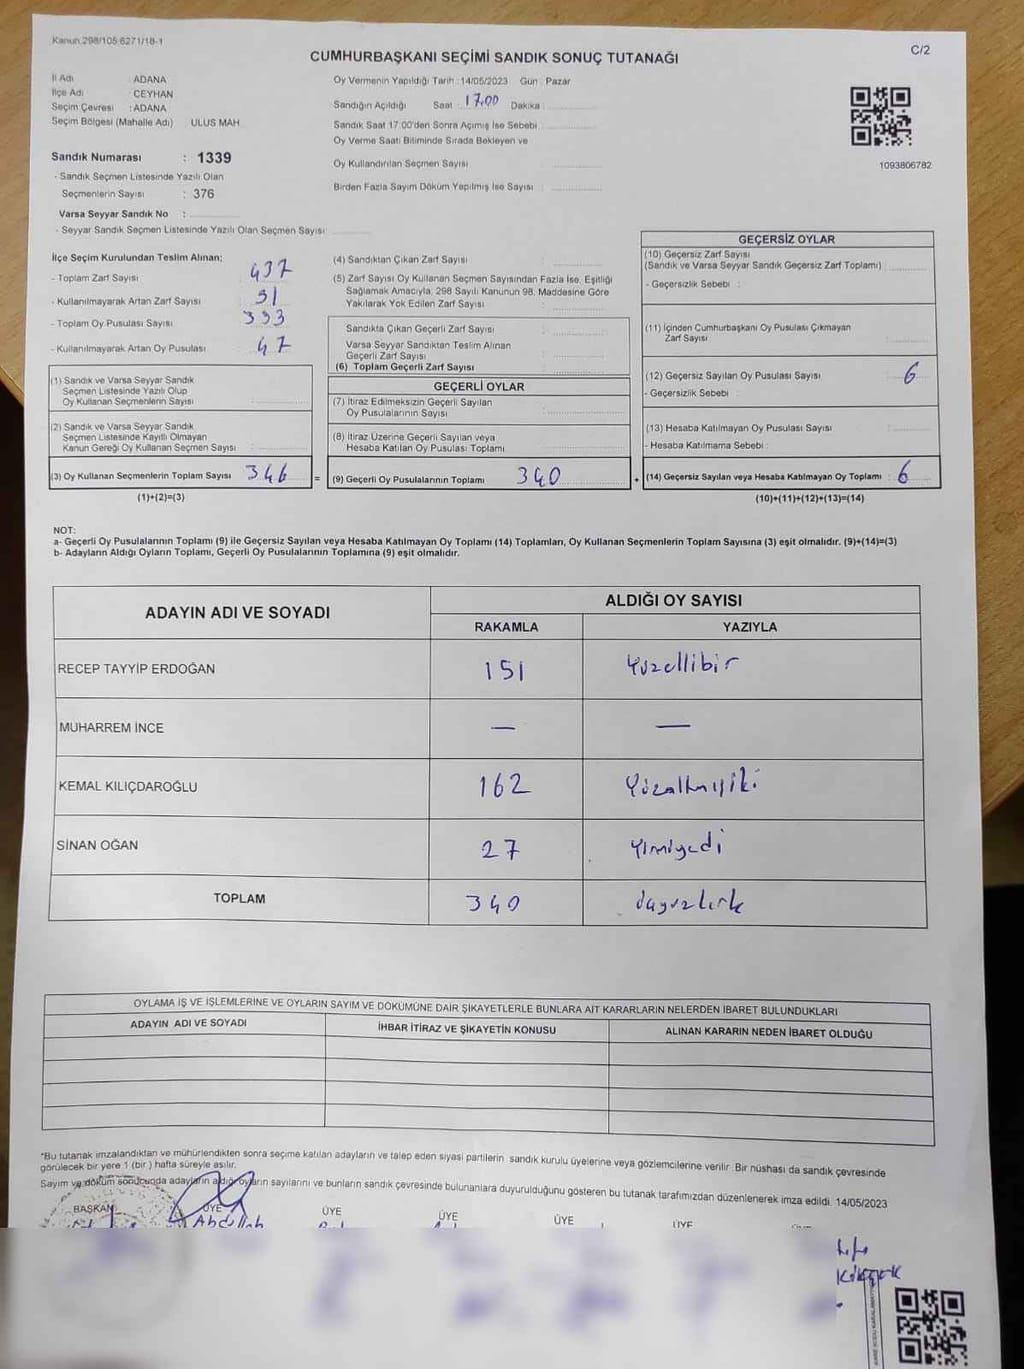 Kanun 298/105 6271/18-1
C/2
CUMHURBAŞKANI SEÇİMİ SANDIK SONUÇ TUTANAĞI
İl Adı : ADANA
İlçe Adı : CEYHAN
Seçim Çevresi : ADANA
Seçim Bölgesi (Mahalle Adı) ULUS MAH.
Oy Vermenin Yapıldığı Tarih : 14/05/2023 Gün : Pazar
Sandığın Açıldığı Saat : 17.00 Dakika :
Sandık Saat 17:00'den Sonra Açımış İse Sebebi :
Oy Verme Saati Bitiminde Sırada Bekleyen ve
Oy Kullandırılan Seçmen Sayısı :
Birden Fazla Sayım Döküm Yapılmış İse Sayısı :
1093806782
Sandık Numarası : 1339
- Sandık Seçmen Listesinde Yazılı Olan
Seçmenlerin Sayısı : 376
Varsa Seyyar Sandık No :
- Seyyar Sandık Seçmen Listesinde Yazılı Olan Seçmen Sayısı :
İlçe Seçim Kurulundan Teslim Alınan;
- Toplam Zarf Sayısı 437
- Kullanılmayarak Artan Zarf Sayısı 91
- Toplam Oy Pusulası Sayısı 393
- Kullanılmayarak Artan Oy Pusulası 47
(1) Sandık ve Varsa Seyyar Sandık
Seçmen Listesinde Yazılı Olup
Oy Kullanan Seçmenlerin Sayısı :
(2) Sandık ve Varsa Seyyar Sandık
Seçmen Listesinde Kayıtlı Olmayan
Kanun Gereği Oy Kullanan Seçmen Sayısı :
(3) Oy Kullanan Seçmenlerin Toplam Sayısı 346 =
(1)+(2)=(3)
(4) Sandıktan Çıkan Zarf Sayısı :
(5) Zarf Sayısı Oy Kullanan Seçmen Sayısından Fazla İse, Eşitliği
Sağlamak Amacıyla, 298 Sayılı Kanunun 98. Maddesine Göre
Yakılarak Yok Edilen Zarf Sayısı :
Sandıkta Çıkan Geçerli Zarf Sayısı :
Varsa Seyyar Sandıktan Teslim Alınan
Geçerli Zarf Sayısı :
(6) Toplam Geçerli Zarf Sayısı :
GEÇERLİ OYLAR
(7) İtiraz Edilmeksizin Geçerli Sayılan
Oy Pusulalarının Sayısı :
(8) İtiraz Üzerine Geçerli Sayılan veya
Hesaba Katılan Oy Pusulası Toplamı :
(9) Geçerli Oy Pusulalarının Toplamı 340 +
GEÇERSİZ OYLAR
(10) Geçersiz Zarf Sayısı
(Sandık ve Varsa Seyyar Sandık Geçersiz Zarf Toplamı) :
- Geçersizlik Sebebi :
(11) İçinden Cumhurbaşkanı Oy Pusulası Çıkmayan
Zarf Sayısı :
(12) Geçersiz Sayılan Oy Pusulası Sayısı : 6
- Geçersizlik Sebebi :
(13) Hesaba Katılmayan Oy Pusulası Sayısı :
- Hesaba Katılmama Sebebi :
(14) Geçersiz Sayılan veya Hesaba Katılmayan Oy Toplamı : 6
(10)+(11)+(12)+(13)=(14)
NOT:
a- Geçerli Oy Pusulalarının Toplamı (9) ile Geçersiz Sayılan veya Hesaba Katılmayan Oy Toplamı (14) Toplamları, Oy Kullanan Seçmenlerin Toplam Sayısına (3) eşit olmalıdır. (9)+(14)=(3)
b- Adayların Aldığı Oyların Toplamı, Geçerli Oy Pusulalarının Toplamına (9) eşit olmalıdır.
ADAYIN ADI VE SOYADI
ALDIĞI OY SAYISI
RAKAMLA YAZIYLA
RECEP TAYYİP ERDOĞAN 151 Yüzellibir
MUHARREM İNCE — —
KEMAL KILIÇDAROĞLU 162 Yüzaltmışiki
SİNAN OĞAN 27 Yirmiyedi
TOPLAM 340
OYLAMA İŞ VE İŞLEMLERİNE VE OYLARIN SAYIM VE DÖKÜMÜNE DAİR ŞİKAYETLERLE BUNLARA AİT KARARLARIN NELERDEN İBARET BULUNDUKLARI
ADAYIN ADI VE SOYADI İHBAR İTİRAZ VE ŞİKAYETİN KONUSU ALINAN KARARIN NEDEN İBARET OLDUĞU
*Bu tutanak imzalandıktan ve mühürlendikten sonra seçime katılan adayların ve talep eden siyasi partilerin sandık kurulu üyelerine veya gözlemcilerine verilir. Bir nüshası da sandık çevresinde
görülecek bir yere 1 (bir ) hafta süreyle asılır.
Sayım ve döküm sonucunda adayların aldığı oyların sayılarını ve bunların sandık çevresinde bulunanlara duyurulduğunu gösteren bu tutanak tarafımızdan düzenlenerek imza edildi. 14/05/2023
BAŞKAN ÜYE ÜYE ÜYE ÜYE ÜYE
Abdullah